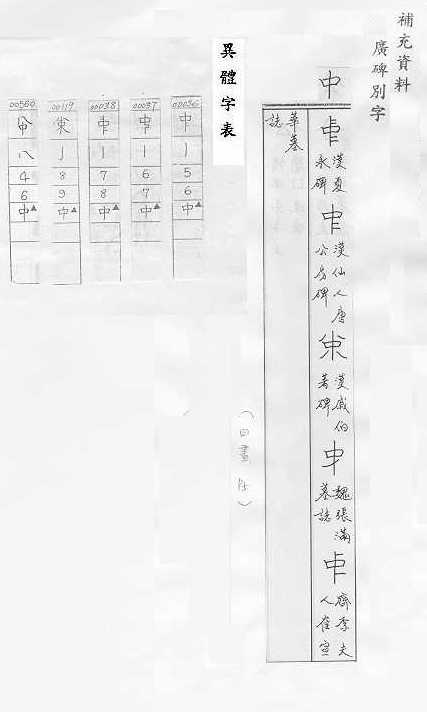 補充資料
廣碑別字
中
𠁩 漢夏永碑
中 漢仙人唐公房碑
漢戚伯著碑
魏張滿墓誌
齊李夫人崔宣華墓誌
異體字表
00036
中
丨
5
6
中▲
00037
丨
6
7
中▲
00038
丨
7
8
中▲
00119
亅
8
9
中▲
00560
八
4
6
中▲